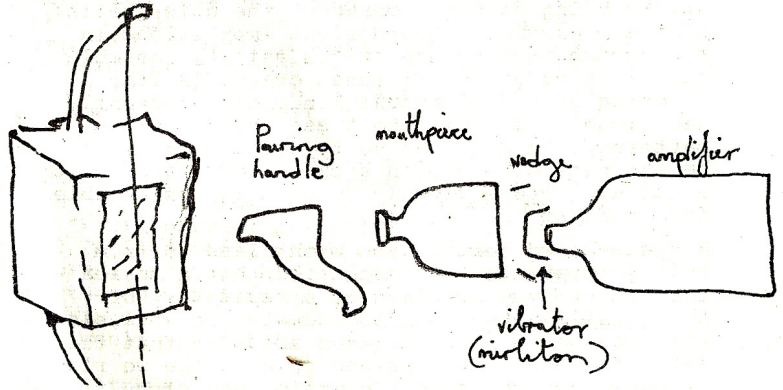 Pouring
handle
mouthpiece
wedge
amplifier
vibrator
(mirliton)